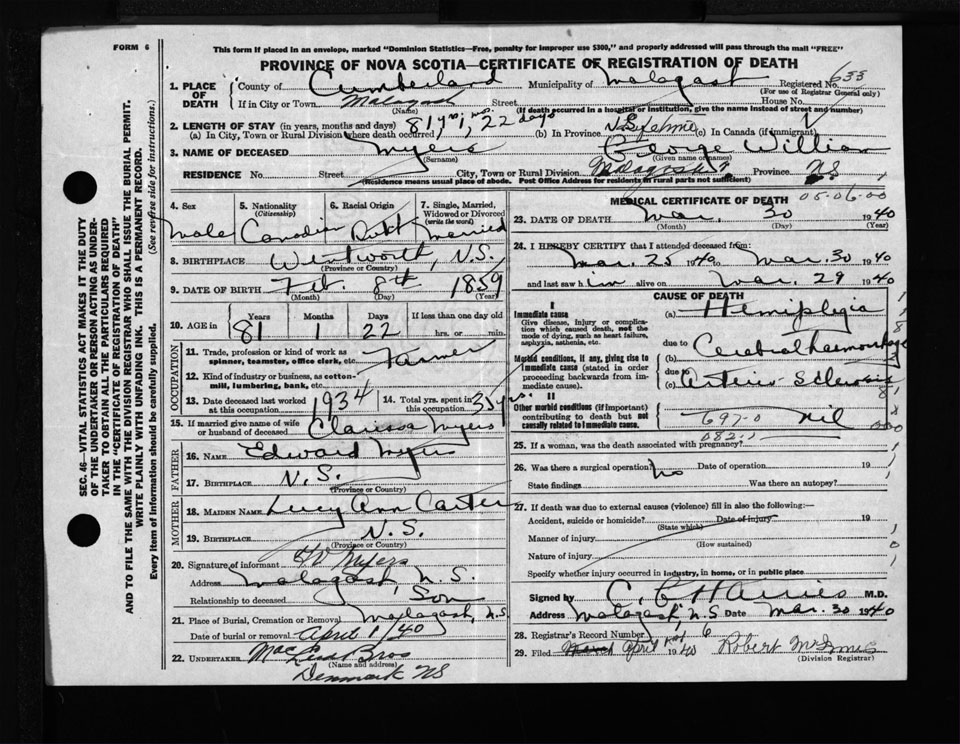 FORM 6
This form if placed in an envelope, marked "Dominion Statistics—Free, penalty for improper use $300," and properly addressed will pass through the mail "FREE"
PROVINCE OF NOVA SCOTIA—CERTIFICATE OF REGISTRATION OF DEATH
SEC. 46—VITAL STATISTICS ACT MAKES IT THE DUTY
OF THE UNDERTAKER OR PERSON ACTING AS UNDER-
TAKER TO OBTAIN ALL THE PARTICULARS REQUIRED
IN THE "CERTIFICATE OF REGISTRATION OF DEATH"
AND TO FILE THE SAME WITH THE DIVISION REGISTRAR WHO SHALL ISSUE THE BURIAL PERMIT.
WRITE PLAINLY WITH UNFADING INK. THIS IS A PERMANENT RECORD.
Every item of Information should be carefully supplied. (See reverse side for instructions.)
1. PLACE OF DEATH County of Cumberland Municipality of Malagash Registered No. 633
(For use of Registrar General only)
If in City or Town Malagash Street House No.
(Name) (If death occurred in a hospital or institution, give the name instead of street and number)
2. LENGTH OF STAY (in years, months and days)
(a) In City, Town or Rural Division where death occurred 81 yrs, 1 mo. 22 days (b) In Province N.S. (c) In Canada (if immigrant)
3. NAME OF DECEASED Myers George William
(Surname) (Given name or names)
RESIDENCE No. Street City, Town or Rural Division Malagash Province NS
(Residence means usual place of abode. Post Office Address for residents in rural parts not sufficient)
4. Sex Male
5. Nationality (Citizenship) Canadian
6. Racial Origin
7. Single, Married, Widowed or Divorced (write the word) Married
8. BIRTHPLACE Wentworth, N.S.
(Province or Country)
9. DATE OF BIRTH Feb. 8th 1859
(Month) (Day) (Year)
10. AGE in Years Months Days If less than one day old
81 1 22 hrs. or min.
OCCUPATION
11. Trade, profession or kind of work as spinner, teamster, office clerk, etc. Farmer
12. Kind of industry or business, as cotton-mill, lumbering, bank, etc.
13. Date deceased last worked at this occupation 1934
14. Total yrs. spent in this occupation 35 yrs.
15. If married give name of wife or husband of deceased Clarissa Myers
FATHER
16. Name Edward Myers
17. Birthplace N.S.
(Province or Country)
MOTHER
18. MAIDEN NAME Lucy Ann Carter
19. BIRTHPLACE N.S.
(Province or Country)
20. Signature of informant Myers
Address Malagash, N.S.
Relationship to deceased Son
21. Place of Burial, Cremation or Removal Malagash, N.S.
Date of burial or removal April 1/40
22. UNDERTAKER Bros
(Name and address)
Denmark NS
MEDICAL CERTIFICATE OF DEATH 05-06-00
23. DATE OF DEATH Mar. 30 1940
(Month) (Day) (Year)
24. I HEREBY CERTIFY that I attended deceased from:
Mar. 25 1940 to Mar. 30 1940
and last saw him alive on Mar. 29 1940
CAUSE OF DEATH
I
Immediate cause
Give disease, injury or complication which caused death, not the mode of dying, such as heart failure, asphyxia, asthenia, etc.
(a) Hemiplegia
due to
Morbid conditions, if any, giving rise to immediate cause (stated in order proceeding backwards from immediate cause).
(b) Cerebral haemorrhage
due to
(c) Arterio Sclerosis
II
Other morbid conditions (if important) contributing to death but not causally related to immediate cause.
Nil
25. If a woman, was the death associated with pregnancy?
26. Was there a surgical operation? No Date of operation 19
State findings Was there an autopsy?
27. If death was due to external causes (violence) fill in also the following:—
Accident, suicide or homicide? Date of injury 19
(State which)
Manner of injury
(How sustained)
Nature of injury
Specify whether injury occurred in industry, in home, or in public place
Signed by M.D.
Address Malagash, N.S Date Mar. 30 1940
28. Registrar's Record Number 6
29. Filed April 1st 1940 Robert McInnis
(Division Registrar)